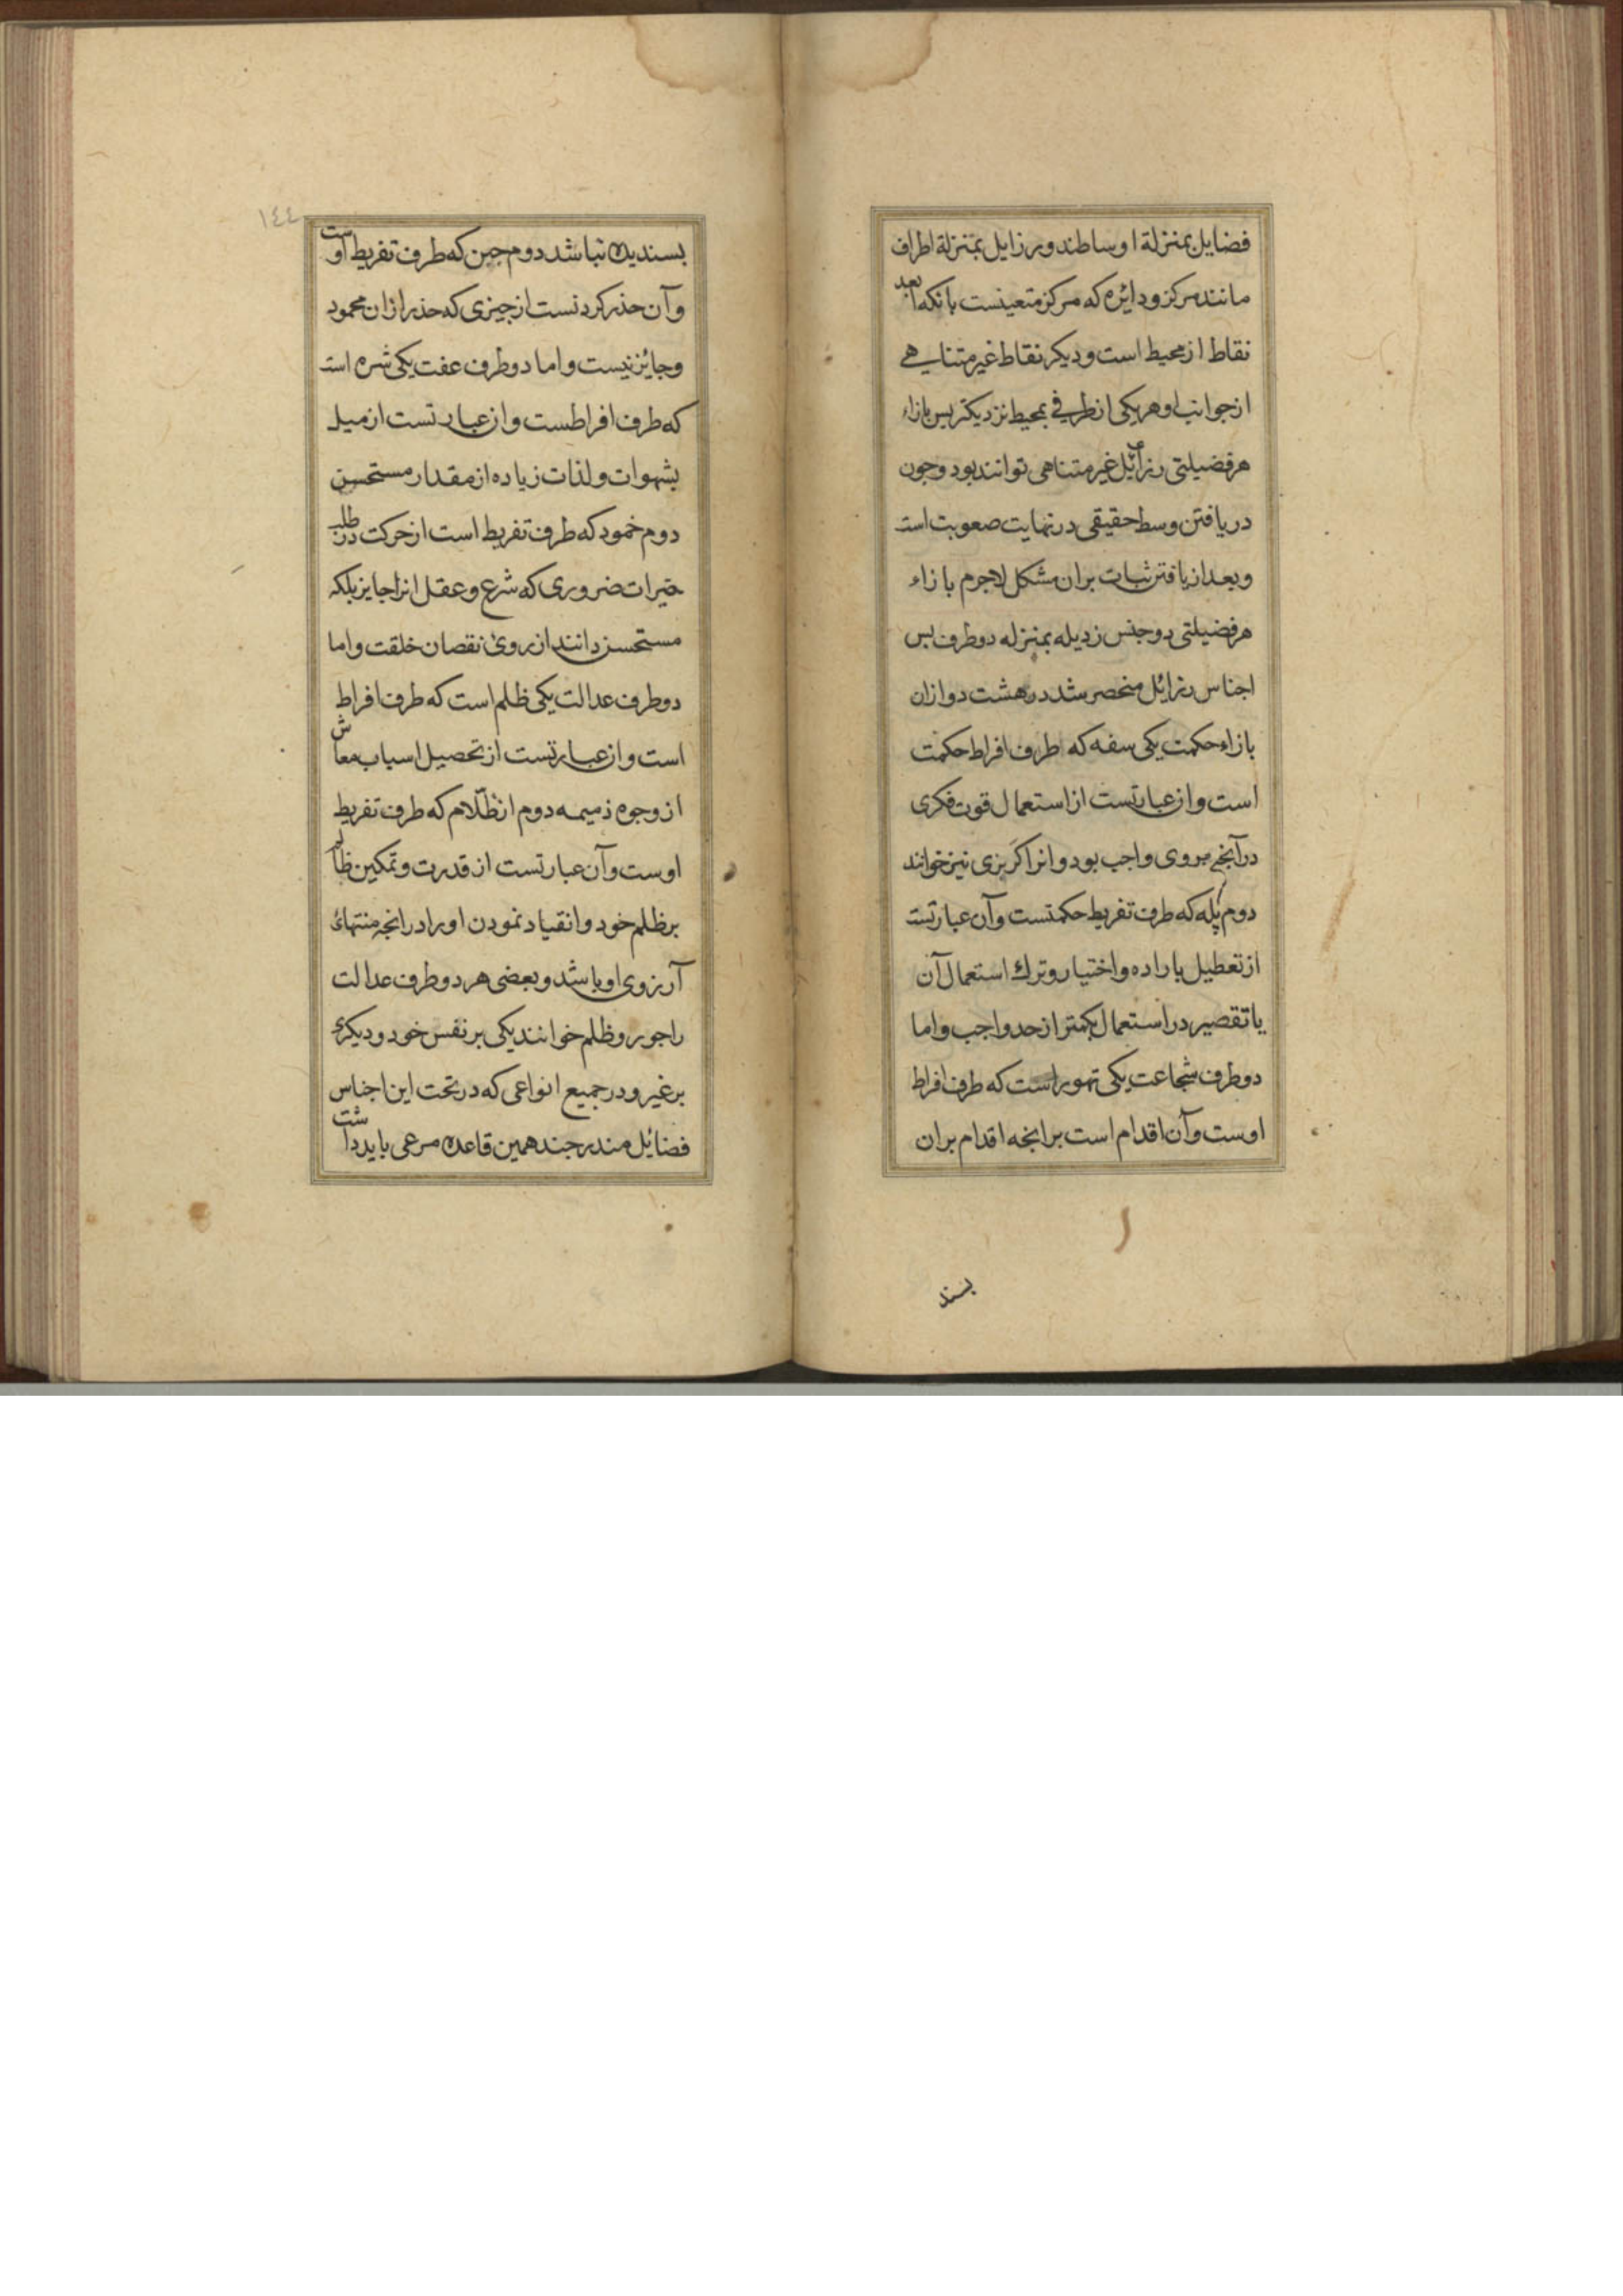 فضایل بمنزلة اوساطند و رزایل بمنزلة اطراف
مانند مرکز و دائره که مرکز متعینست بانکه ابعد
نقاط از محیط است و دیکر نقاط غیر متناهی
از جوانب او هر یکی از طرفی بمحیط نزدیکتر بس بازاء
هر فضیلتی رزائل غیر متناهی توانند بود و جون
دریافتن وسط حقیقی در نهایت صعوبت است
و بعد از یافتن ثبات بران مشکل لاجرم بازاء
هر فضیلتی دو جنس رذیله بمنزله دو طرف بس
اجناس رزائل منحصر شد در هشت دو ازان
بازاء حکمت یکی سفه که طرف افراط حکمت
است و ان عبارتست از استعمال قوت فکری
در آنچه بروی واجب بود و انرا کربزی نیز خوانند
دوم بله که طرف تفریط حکمتست و آن عبارتست
از تعطیل باراده و اختیار و ترک استعمال آن
یا تقصیر در استعمال بکمتر از حد واجب و اما
دو طرف شجاعت یکی تهور است که طرف افراط
اوست و آن اقدام است بر انجه اقدام بران
بسند
١٤٤
بسندیده نباشد دوم جبن که طرف تفریط اوست
و آن حذر کردنست از جیزی که حذر ازان محمود
و جایز نیست و اما دو طرف عفت یکی شره است
که طرف افراطست و ان عبارتست از میل
بشهوات و لذات زیاده از مقدار مستحسن
دوم خمود که طرف تفریط است از حرکت در طلب
خیرات ضروری که شرع و عقل انرا جایز بلکه
مستحسن دانند از روی نقصان خلقت و اما
دو طرف عدالت یکی ظلم است که طرف افراط
است و ان عبارتست از تحصیل اسباب معاش
از وجوه ذمیمه دوم انظلام که طرف تفریط
اوست و آن عبارتست از قدرت و تمکین ظالم
بر ظلم خود و انقیاد نمودن او را در انجه منتهای
آرزوی او باشد و بعضی هر دو طرف عدالت
را جور و ظلم خوانند یکی بر نفس خود و دیکری
بر غیر و در جمیع انواعی که در تحت این اجناس
فضائل مندرجند همین قاعده مرعی باید داشت